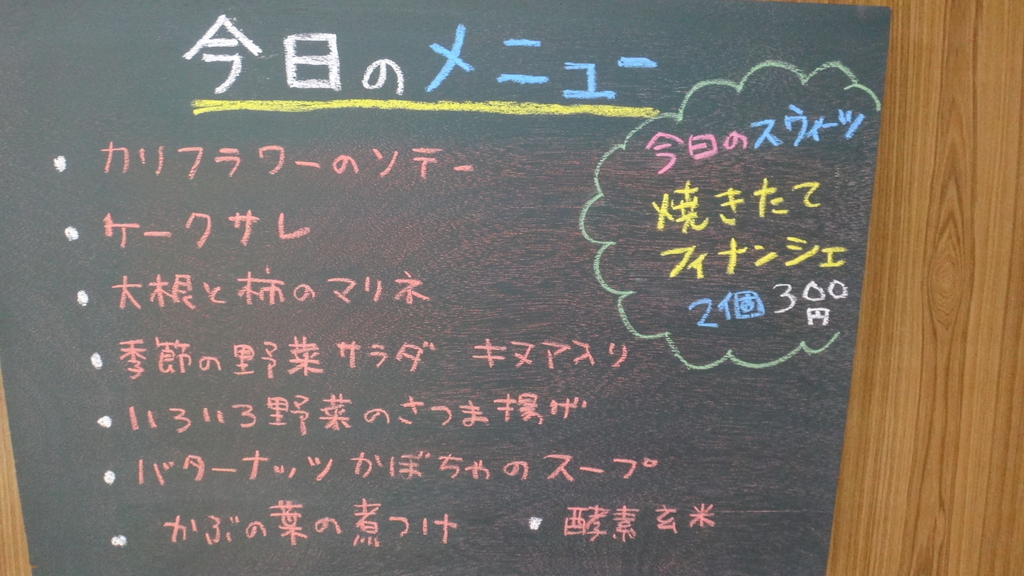 今日のメニュー
・カリフラワーのソテー
・ケークサレ
・大根と柿のマリネ
・季節の野菜サラダ キヌア入り
・いろいろ野菜のさつま揚げ
・バターナッツかぼちゃのスープ
・かぶの葉の煮つけ ・酵素玄米
今日のスウィーツ
焼きたて
フィナンシェ
2個300円